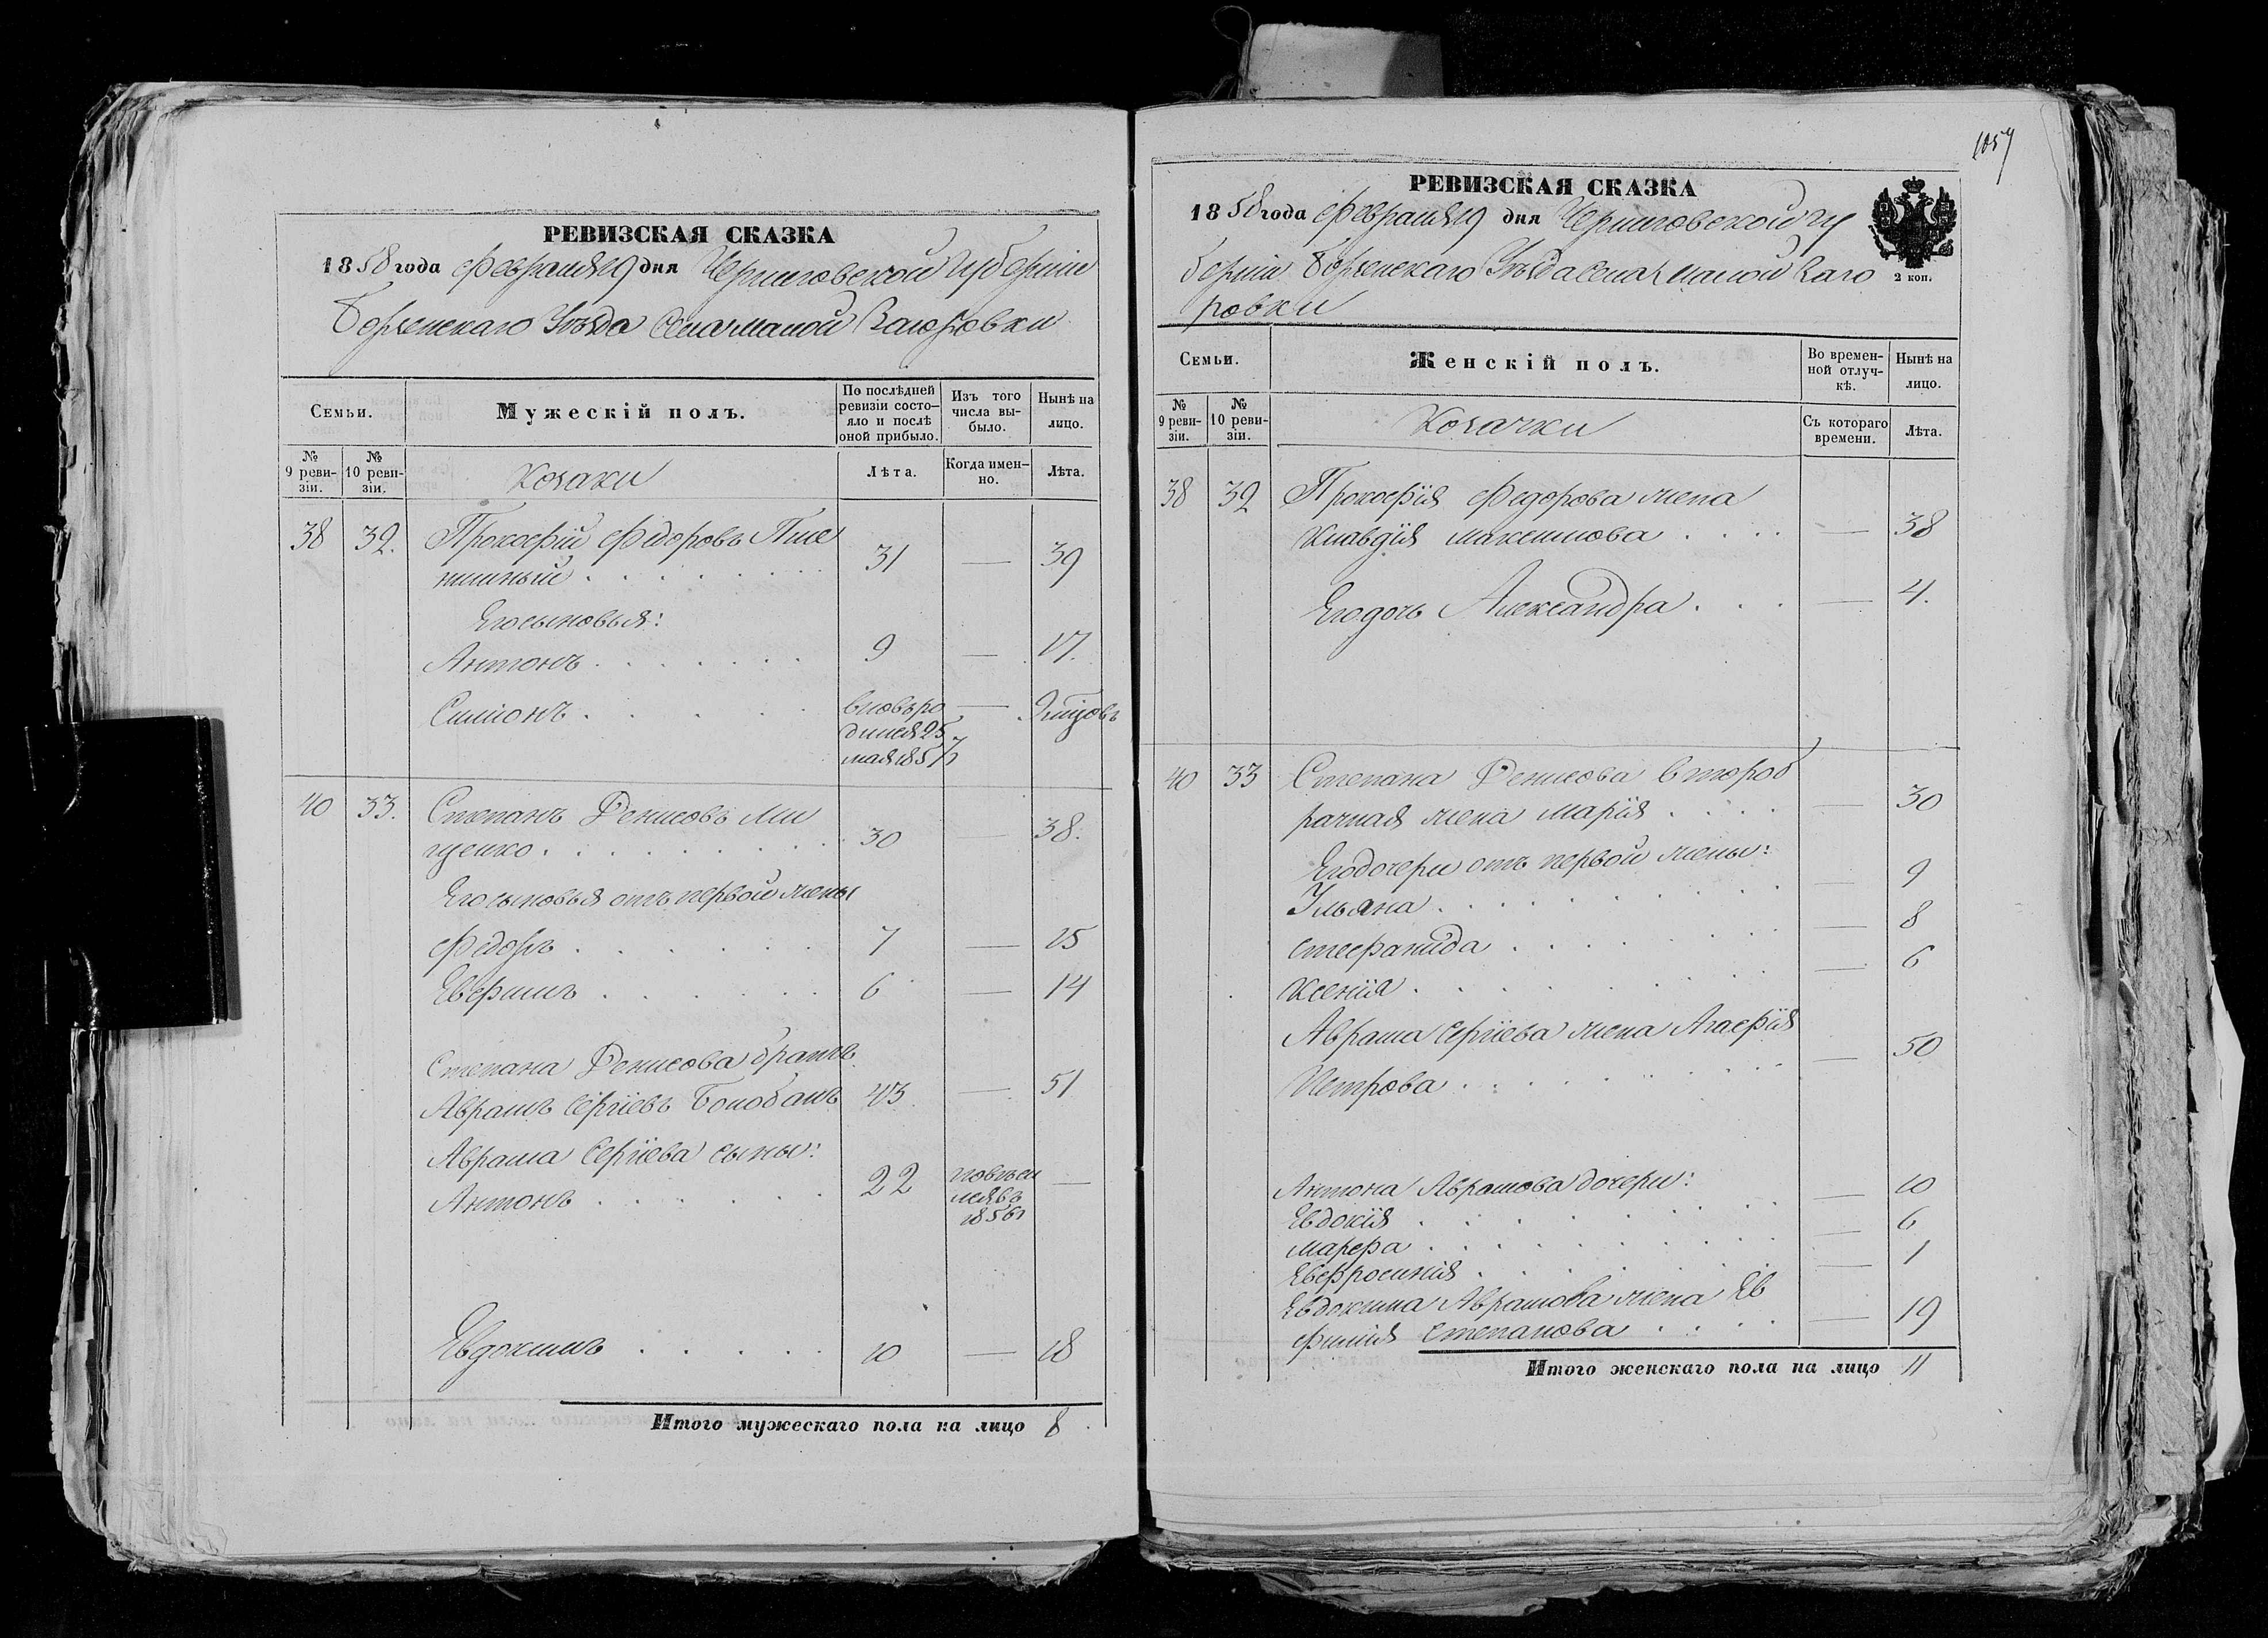 РЕВИЗСКАЯ СКАЗКА
1858 года Февраля 19 дня Черниговской Губернии
Борзенскаго Уѣзда Села малой Загоровки
Семьи.
Мужескій полъ.
По послѣдней ревизіи состо-
яло и послѣ
оной прибыло.
Изъ того
числа вы-
было.
Нынѣ на
лицо.
№
9 реви-
зіи.
№
10 реви-
зіи.
Козаки
Лѣта.
Когда имен-
но.
Лѣта.
38 32. Прокофій Федоровъ Пше
ничный 31 — 39
Его сыновья:
Антонъ 9 — 17.
Симіонъ вновь ро
дился 25
мая 1857 —
40 33. Степанъ Денисовъ Ми
щенко 30 — 38.
Его сыновья отъ первой жены
Федоръ 7 — 15
Ефремъ 6 — 14
Степана Денисова братъ
Аврамъ Сергіевъ 43 — 51
Аврама Сергіева сыны:
Антонъ 22 —
1856
Евдокимъ 10 — 18
Итого мужескаго пола на лицо 8
1057
РЕВИЗСКАЯ СКАЗКА
1858 года Февраля 19 дня Черниговской Гу
берніи Борзенскаго Уѣзда Села малой Заго
ровки
2 коп.
Семьи.
Женскій полъ.
Во времен-
ной отлуч-
кѣ.
Нынѣ на
лицо.
№
9 реви-
зіи.
№
10 реви-
зіи.
Козачки
Съ котораго
времени.
Лѣта.
38 32 Прокофія Федорова жена
Клавдія максимова — 38
Его дочь Александра — 4.
40 33 Степана Денисова второб
рачная жена Марія — 30
Его дочери отъ первой жены:
Ульяна — 9
Стефанида — 8
Ксенія — 6
Аврама Сергіева жена Агафія
Петрова — 50
Антона Аврамова дочери:
Евдокія — 10
Марфа — 6
Евфросинія — 1
Евдокима Аврамова жена Ев
фимія Степанова — 19
Итого женскаго пола на лицо 11